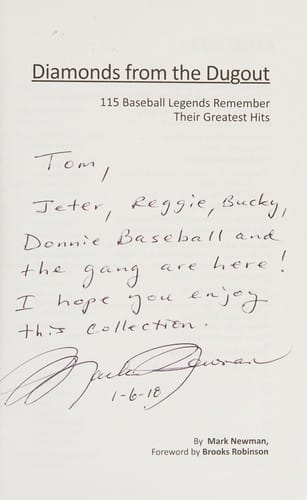 Diamonds from the Dugout
115 Baseball Legends Remember
Their Greatest Hits
Tom,
Jeter, Reggie, Bucky,
Donnie Baseball and
the gang are here!
I hope you enjoy
this collection.
Mark Newman
1-6-18
By Mark Newman,
Foreword by Brooks Robinson